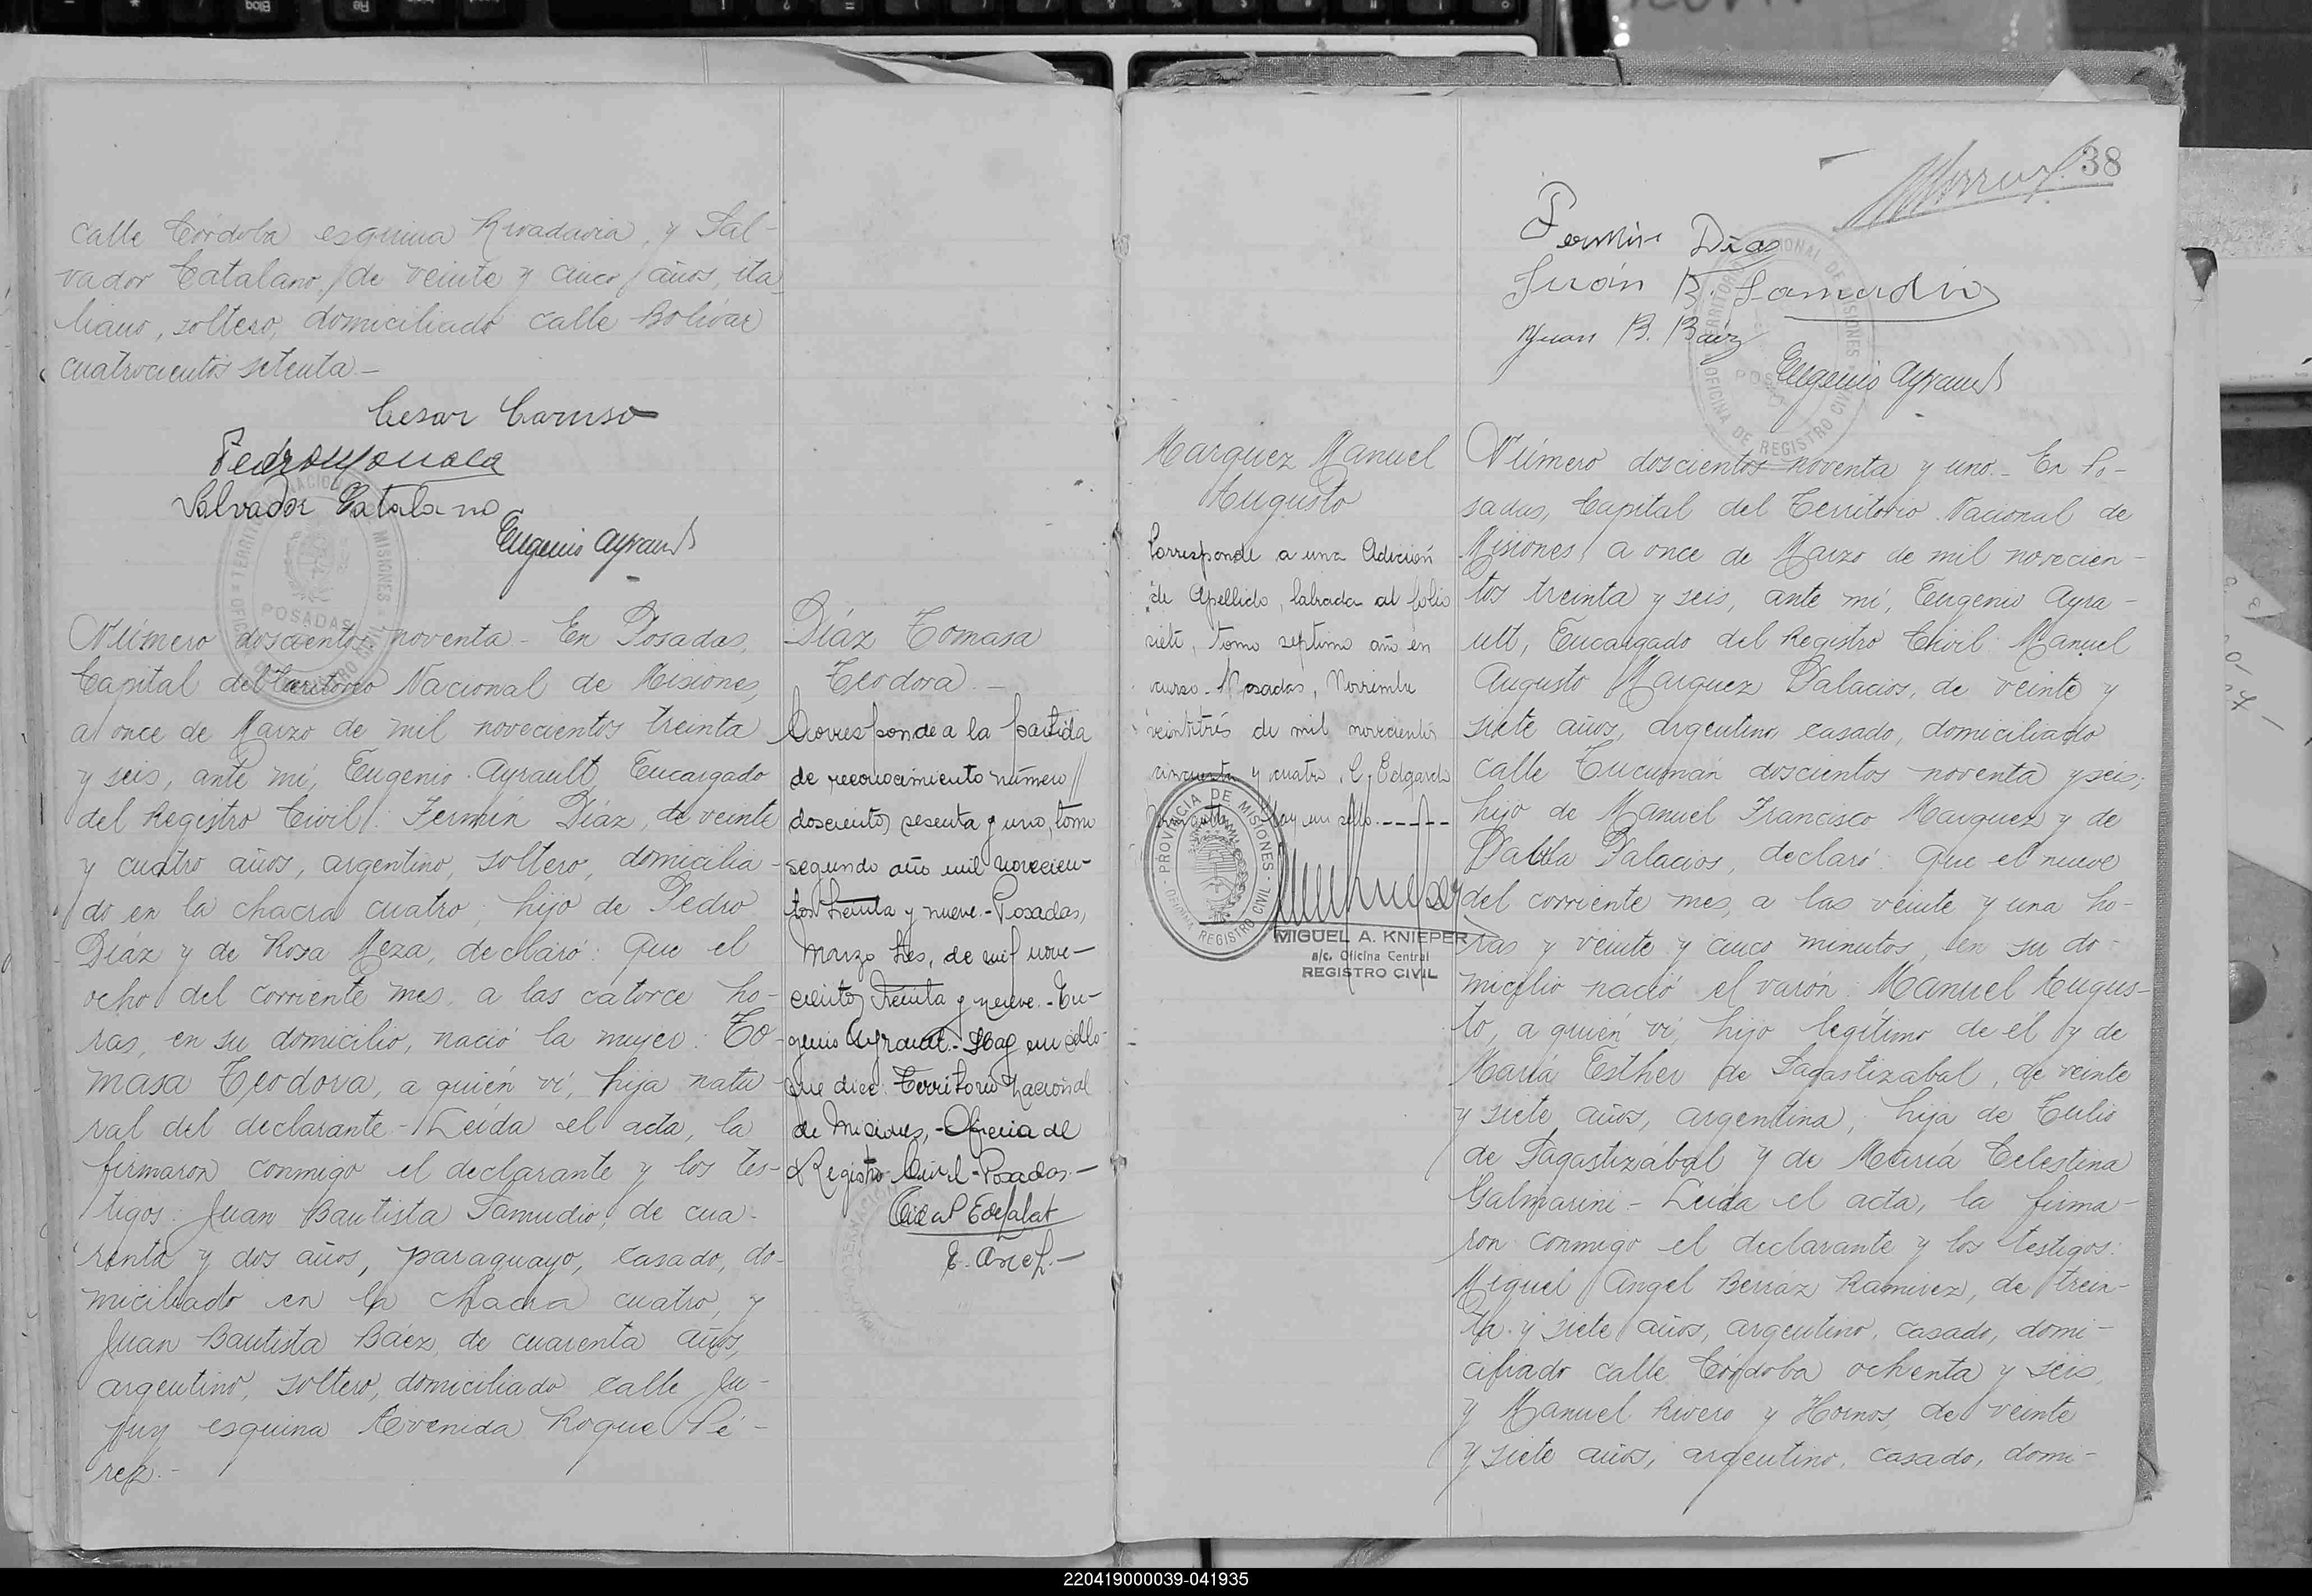 calle Córdoba esquina Rivadavia, y Sal-
vador Catalano, de veinte y cinco años, ita-
liano, soltero, domiciliado calle Bolívar
cuatrocientos setenta.-
Cesar Caruso
Salvador Catalano
Eugenio Ayrault
Número doscientos noventa - En Posadas,
Capital del Territorio Nacional de Misiones,
a once de Marzo de mil novecientos treinta
y seis, ante mí, Eugenio Ayrault, Encargado
del Registro Civil: Fermín Díaz, de veinte
y cuatro años, argentino, soltero, domicilia-
do en la chacra cuatro, hijo de Pedro
Díaz y de Rosa Meza, declaró: Que el
ocho del corriente mes, a las catorce ho-
ras, en su domicilio, nació la mujer: To-
masa Teodora, a quién ví, hija natu-
ral del declarante - Leída el acta, la
firmaron conmigo el declarante y los tes-
tigos: Juan Bautista Samudio, de cua-
renta y dos años, paraguayo, casado, do-
miciliado en la chacra cuatro, y
Juan Bautista Báez, de cuarenta años,
argentino, soltero, domiciliado calle Ju-
juy esquina Avenida Roque Pé-
rez.-
Díaz Tomasa
Teodora.-
Corresponde a la partida
de reconocimiento número //
doscientos sesenta y uno, tomo
segundo año mil novecien-
tos treinta y nueve.- Posadas,
Marzo tres, de mil nove-
cientos treinta y nueve.- Eu-
genio Ayrault.- Hay un sello
que dice: Territorio Nacional
de Misiones,- Oficina de
Registro Civil - Posadas.-
38
Fermín Díaz
Juan B. Samudio
Juan B. Báez
Eugenio Ayrault
Marquez Manuel
Augusto
Corresponde a una Adición
de Apellido, labrada al folio
siete, Tomo septimo año en
curso - Posadas, Noviembre
veintitrés de mil novecientos
cincuenta y cuatro. E. Edgardo
Hay un sello.-----
PROVINCIA DE MISIONES
OFICINA REGISTRO CIVIL
MIGUEL A. KNIEPER
a/c. Oficina Central
REGISTRO CIVIL
Número doscientos noventa y uno.- En Po-
sadas, Capital del Territorio Nacional de
Misiones, a once de Marzo de mil novecien-
tos treinta y seis, ante mí, Eugenio Ayra-
ult, Encargado del Registro Civil: Manuel
Augusto Marquez Palacios, de veinte y
siete años, argentino, casado, domiciliado
calle Tucumán doscientos noventa y seis;
hijo de Manuel Francisco Marquez y de
Pabla Palacios, declaró: Que el nueve
del corriente mes, a las veinte y una ho-
ras y veinte y cinco minutos, en su do-
micilio nació el varón: Manuel Augus-
to, a quién ví, hijo legítimo de él y de
María Esther de Sagastizabal, de veinte
y siete años, argentina, hija de Tulio
de Sagastizábal y de María Celestina
Galmarini - Leída el acta, la firma-
ron conmigo el declarante y los testigos:
Miguel Angel Berráz Ramirez, de trein-
ta y siete años, argentino, casado, domi-
ciliado calle Córdoba ochenta y seis,
y Manuel Rivero y Hornos, de veinte
y siete años, argentino, casado, domi-
220419000039-041935